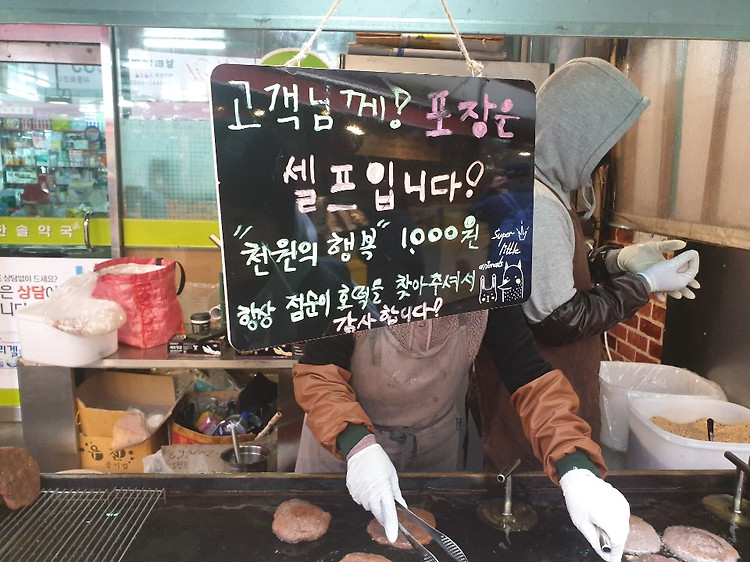 고객님께! 포장은
셀프입니다!
"천원의 행복" 1,000원
Super
little
animals
항상 점순이 호떡을 찾아주셔서
감사합니다!
한솔약국
상담